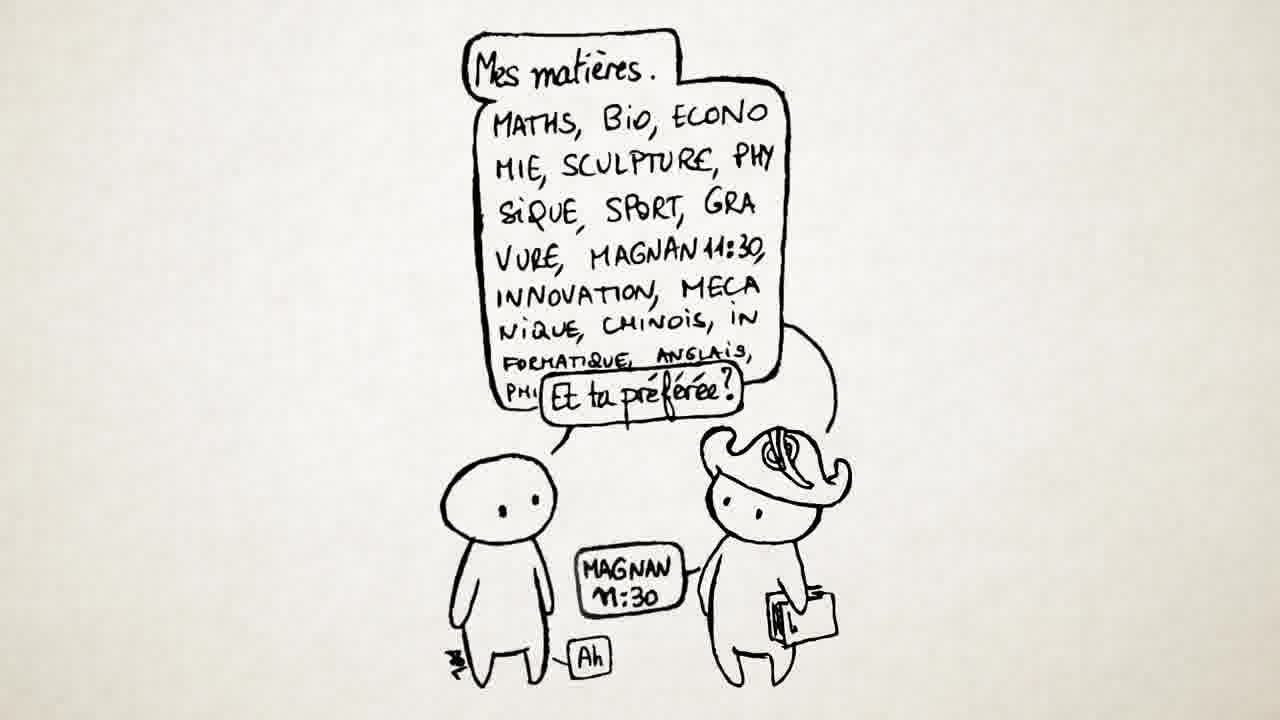 Mes matières.
MATHS, BiO, ECONO
MIE, SCULPTURE, PHY
SiQUE, SPORT, GRA
VURE, MAGNAN 11:30,
INNOVATION, MECA
NiQUE, CHINOiS, iN
FORMATIQUE, ANGLAiS,
PHi
Et ta préférée?
MAGNAN
11:30
Ah